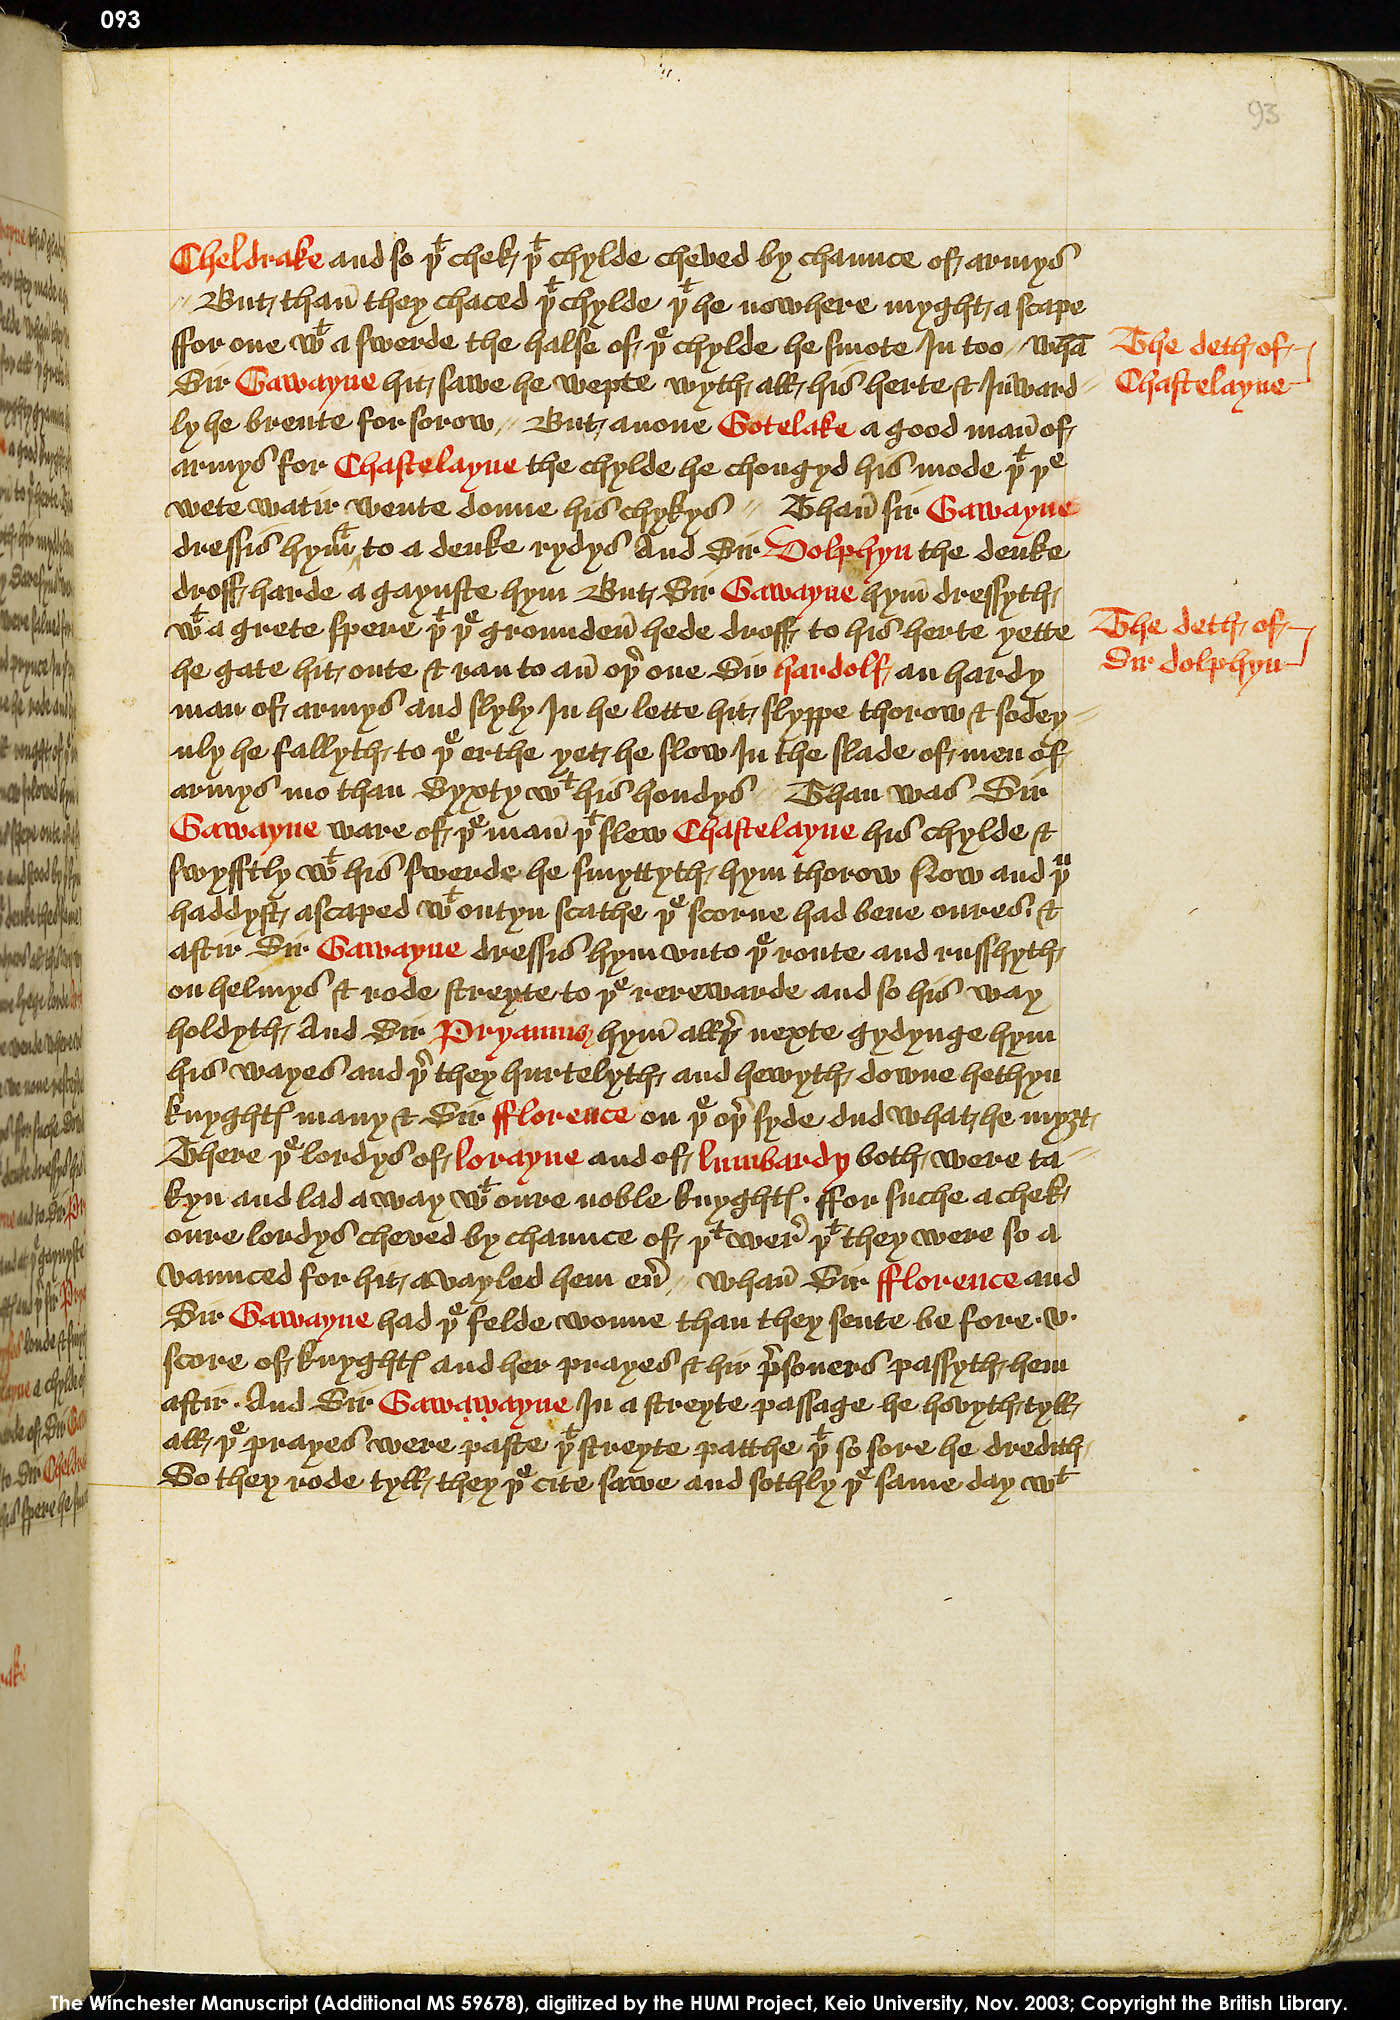 093
93
Cheldrake and so þͭ chek þͭ chylde cheved by chaunce of armys
But than̄ they chaced þͭ chylde þͭ he nowhere myght a scape
ffor one wͭ a swerde the halse of þͤ chylde he smote In too // whā
Sir Gawayne hit sawe he wepte wyth all his herte & Inward
ly he brente for sorow // But anone Gotelake a good man̄ of
armys for Chastelayne the chylde he chongyd his mode þͭ þͤ
wete watir wente doune his chykys // Than̄ sir Gawayne
dressis hym̄ to a deuke rydys And Sir Dolphyn the deuke
droff harde a gaynste hym But Sir Gawayne hym̄ dressyth
wͭ a grete spere þͭ þͤ grounden̄ hede droff to his herte yette
he gate hit oute & ran to an̄ oþ̉ one Sir hardolf an hardy
man of armys and slyly In he lette hit slyppe thorow & sodey
nly he fallyth to þͤ erthe yet he slow In the slade of men of
armys mo than Syxty wͭ his hondys // Than was Sir
Gawayne ware of þͤ man̄ þͭ slew Chastelayne his chylde &
swyfftly wͭ his swerde he smyttyth hym thorow Now and þͧ
haddyst ascaped wͭ outyn scathe þͤ scorne had bene oures. &
aftir Sir Gawayne dressis hym vnto þͤ route and russhyth
on helmys & rode streyte to þͤ rerewarde and so his way
holdyth And Sir Pryamus hym̄ all þ̉ nexte gydynge hym
his wayes and þ̉ they hurtelyth and hewyth downe hethyn
knyghtꝭ many & Sir fflorence on þͤ oþ̉ syde dud what he myȝt
There þͤ lordys of lorayne and of lumbardy both were ta
kyn and lad a way wͭ oure noble knyghtꝭ. ffor suche a chek
oure lordys cheved by chaunce of þͭ wer̉ þͭ they were so a
vaunced for hit avayled hem eū̉ // whan̄ Sir fflorence and
Sir Gawayne had þͤ felde wonne than they sente be fore .v.
score of knyghtꝭ and her prayes & hir p̉soners passyth hem
aftir. And Sir Gawạẉayne In a streyte passage he hovyth tyll
all þͤ prayes were paste þͭ streyte patthe þͭ so sore he dredith
So they rode tyll they þͤ cite sawe and sothly þͤ same day wͭ
The deth of
Chastelayne
The deth of
Sir dolphyn
The Winchester Manuscript (Additional MS 59678), digitized by the HUMI Project, Keio University, Nov. 2003; Copyright the British Library.